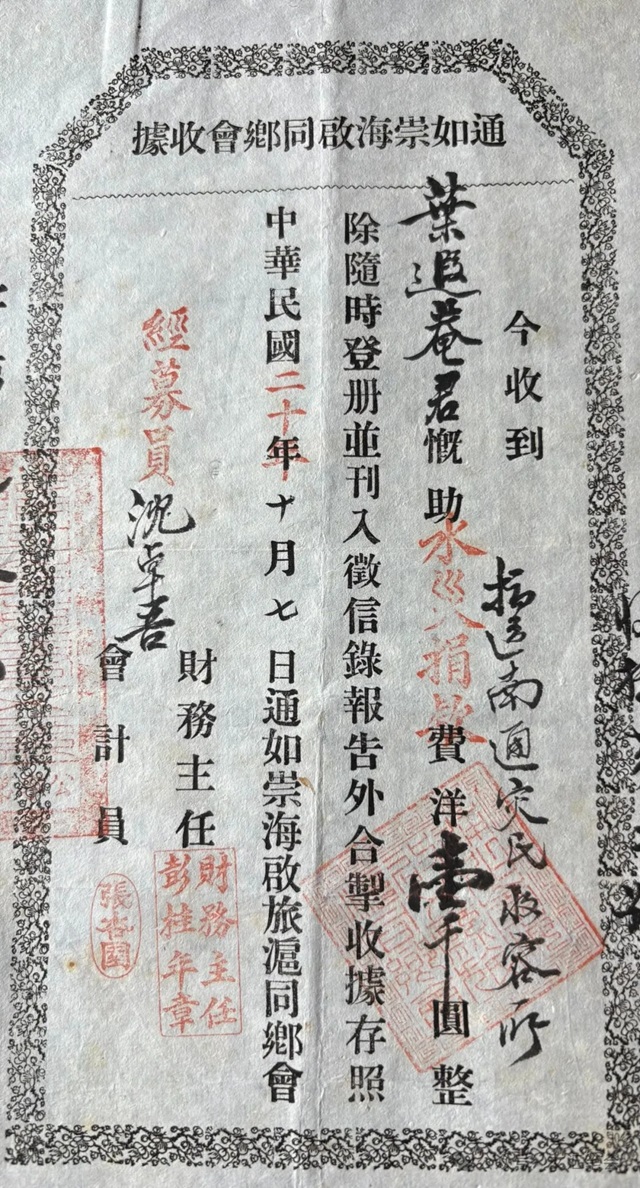 通如崇海啟同鄉會收據
今收到
指送南通災民收容所
葉遐菴君慨助水災捐款費洋壹千圓整
除隨時登册並刊入徵信錄報告外合掣收據存照
中華民國二十年十月七日通如崇海啟旅滬同鄉會
財務主任
財務主任
彭桂年章
經募員
沈卓吾
會計員